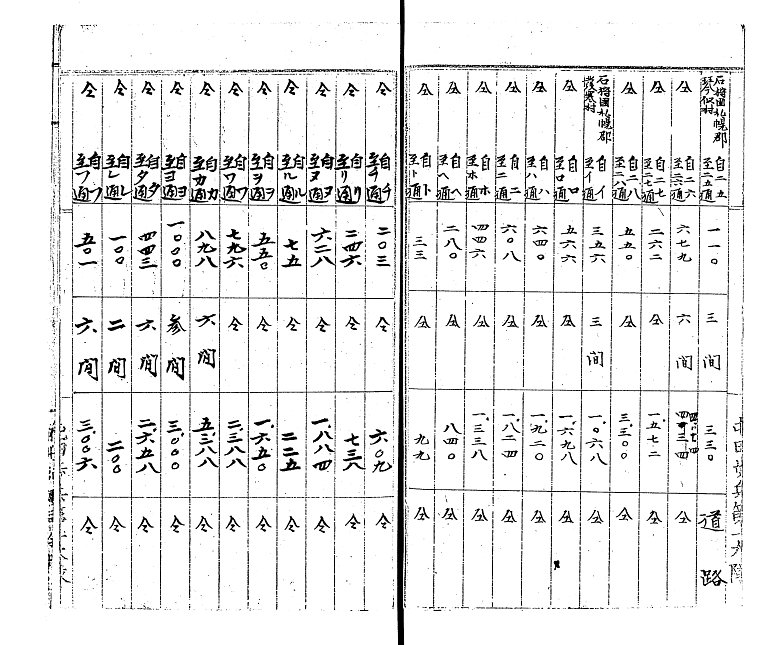 石狩国札幌郡琴似村 自二五至二五通 一一〇 三間 三三〇 道路
仝 自二六至二六通 六七九 六間 四、〇七四 仝
仝 自二七至二七通 二六二 仝 一、五七二 仝
仝 自二八至二八通 五五〇 仝 三、三〇〇 仝
石狩国札幌郡發寒村 自イ至イ通 三五六 三間 一、〇六八 仝
仝 自ロ至ロ通 五六六 仝 一、六九八 仝
仝 自ハ至ハ通 六四〇 仝 一、九二〇 仝
仝 自ニ至ニ通 六〇八 仝 一、八二四 仝
仝 自ホ至ホ通 四四六 仝 一、三三八 仝
仝 自ヘ至ヘ通 二八〇 仝 八四〇 仝
仝 自ト至ト通 三三 仝 九九 仝
仝 自チ至チ通 二〇三 仝 六〇九 仝
仝 自リ至リ通 二四六 仝 七三八 仝
仝 自ヌ至ヌ通 六二八 仝 一、八八四 仝
仝 自ル至ル通 七五 仝 二二五 仝
仝 自ヲ至ヲ通 五五〇 仝 一、六五〇 仝
仝 自ワ至ワ通 七九六 仝 二、三八八 仝
仝 自カ至カ通 八九八 六間 五、三八八 仝
仝 自ヨ至ヨ通 一〇〇〇 参間 三、〇〇〇 仝
仝 自タ至タ通 四四三 六間 二、六五八 仝
仝 自レ至レ通 一〇〇 二間 二〇〇 仝
仝 自ソ至ソ通 五〇一 六間 三、〇〇六 仝